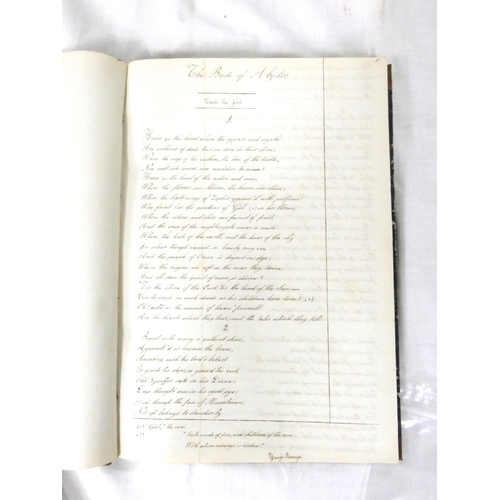 The Bride of Abydos
Canto the First
1.
Know ye the land where the cypress and myrtle
Are emblems of deeds that are done in their clime,
Where the rage of the vulture, the love of the turtle,
Now melt into sorrow, now madden to crime?
Know ye the land of the cedar and vine,
Where the flowers ever blossom, the beams ever shine,
Where the light wings of Zephyr oppress'd with perfume
Wax faint o'er the gardens of Gúl (1) in her bloom,
Where the citron and olive are fairest of fruit,
And the voice of the nightingale never is mute;
Where the tints of the earth, and the hues of the sky
In colour though varied, in beauty may vie,
And the purple of Ocean is deepest in dye;
Where the virgins are soft as the roses they twine,
And all save the spirit of man, is divine?
'Tis the clime of the East, 'tis the land of the Sun—
Can he smile on such deeds as his children have done? (2)
Oh! wild as the accents of lovers' farewell
Are the hearts which they bear, and the tales which they tell.
2.
Begirt with many a gallant slave,
Apparell'd as becomes the brave,
Awaiting each his lord's behest
To guide his steps, or guard his rest,
Old Giaffir sate in his Divan:
Deep thought was in his aged eye;
And though the face of Mussulman
Not oft betrays to standers by
(1) "Gúl," the rose.
(2) "Souls made of fire, and children of the sun,
With whom revenge is virtue."
Young's Revenge